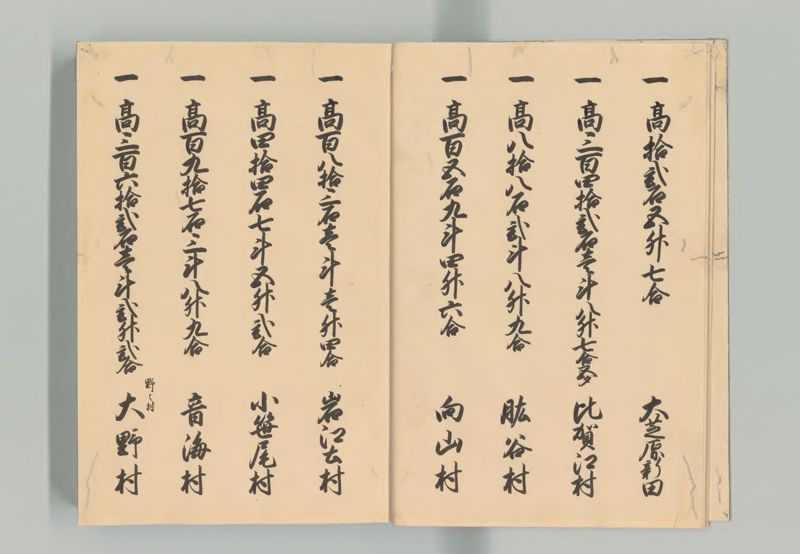 一高拾弐石五升七合 大芝原新田
一高三百四拾弐石壱斗八升七合五夕 比賀江村
一高八拾八石弐斗八升九合 肱谷村
一高百五石九斗四升六合 向山村
一高百八拾三石壱斗壱升四合 岩江古村
一高四拾四石七斗五升弐合 小笹尾村
一高百九拾七石三斗八升九合 音海村
野々村
一高三百六拾弐石壱斗弐升弐合 大野村